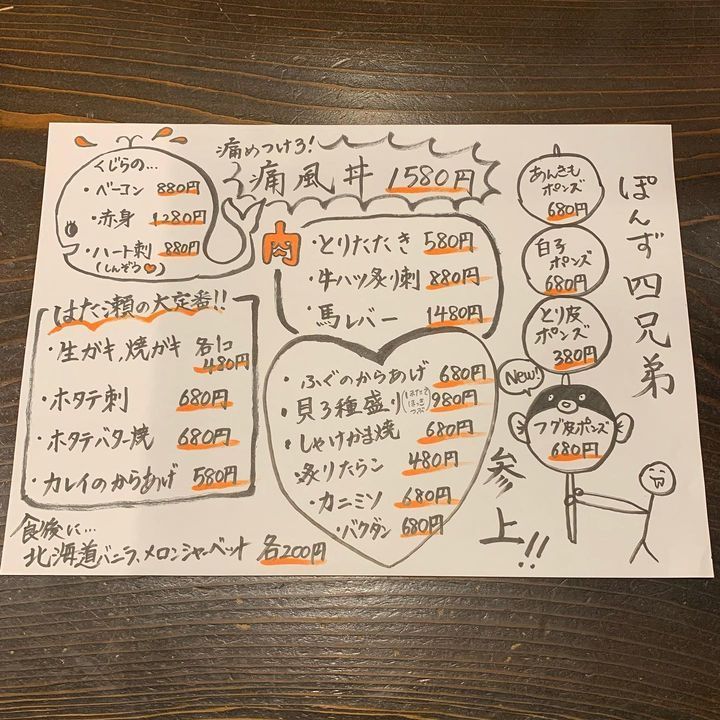 くじらの…
・ベーコン 880円
・赤身 1280円
・ハート刺 880円
(しんぞう♥)
痛めつけろ!
痛風丼 1580円
肉
・とりたたき 580円
・牛ハツ炙り刺 880円
・馬レバー 1480円
はた瀬の大定番!!
・生ガキ,焼ガキ 各1コ
480円
・ホタテ刺 680円
・ホタテバター焼 680円
・カレイのからあげ 580円
・ふぐのからあげ 680円
・貝3種盛り(ほたて ほっき つぶ) 980円
・しゃけかま焼 680円
・炙りたらこ 480円
・カニミソ 680円
・バクダン 680円
ぽんず四兄弟
あんきも
ポンズ
680円
白子
ポンズ
680円
とり皮
ポンズ
380円
New!
フグ皮ポンズ
680円
参上!!
食後に…
北海道バニラ、メロンシャーベット 各200円